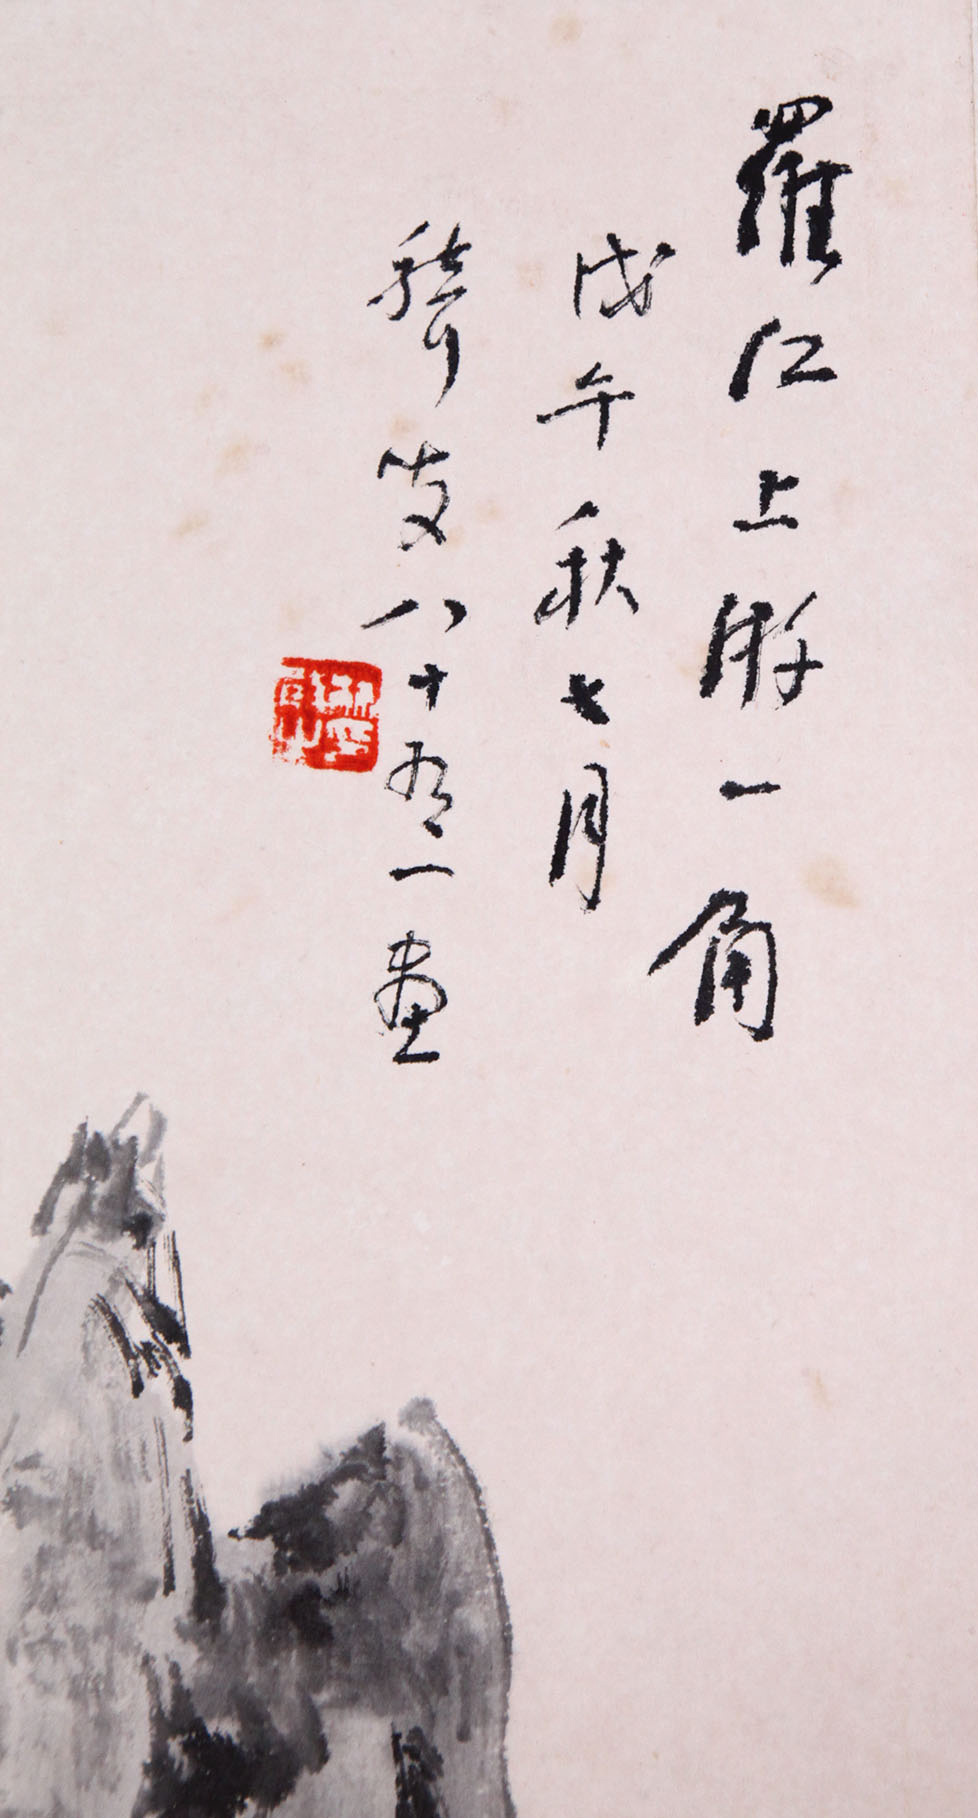 羅江上游一角
戊午秋七月
八十有一畫